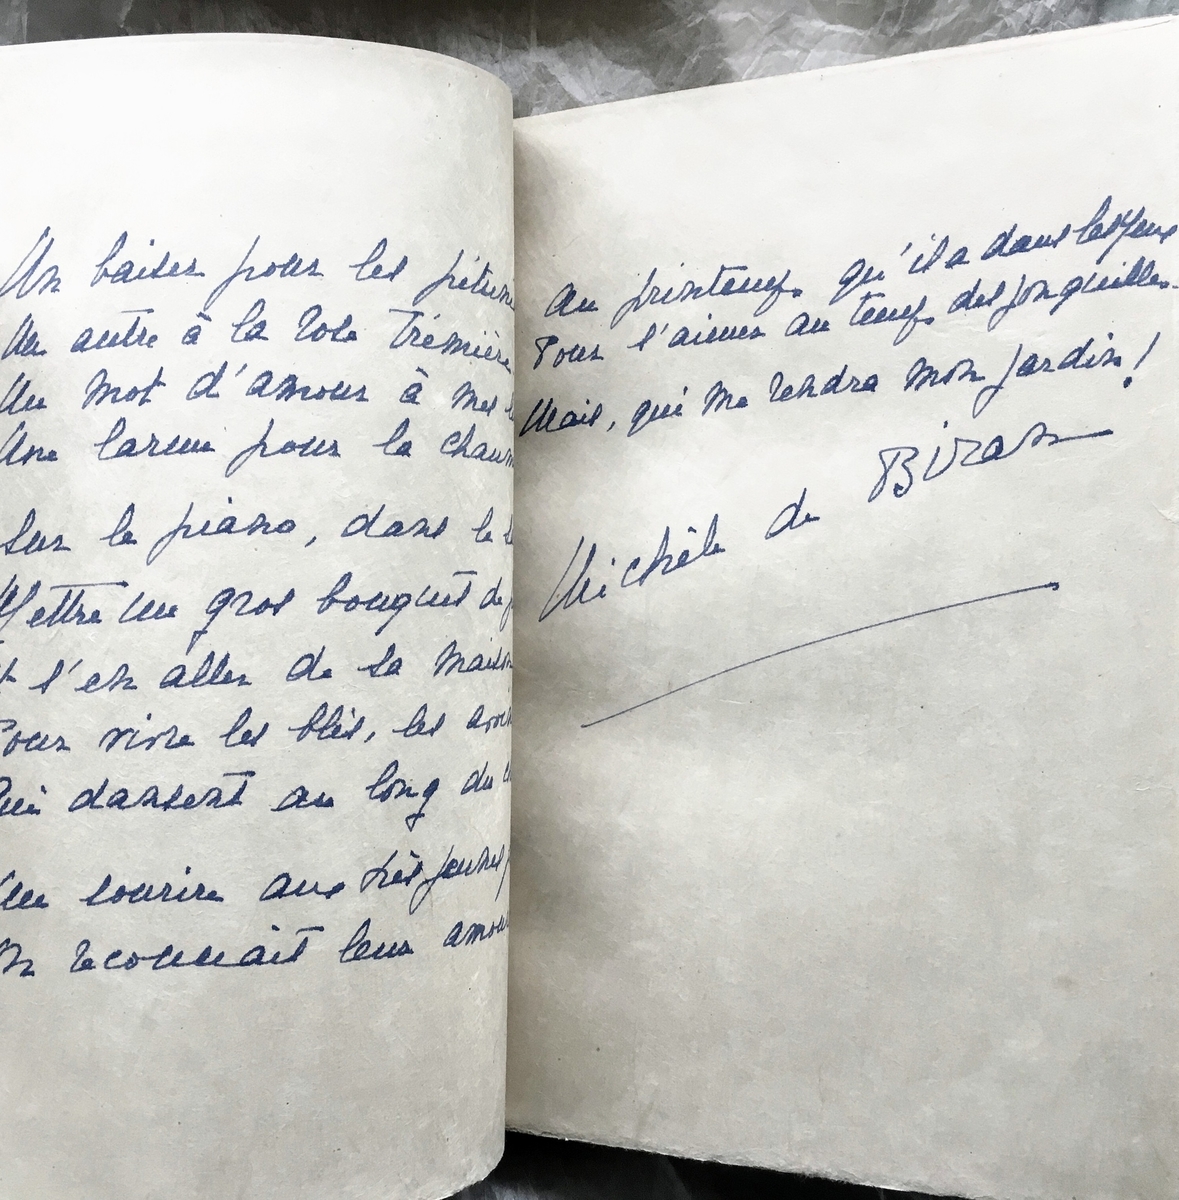 Un baiser pour les pétun
Un autre à la rose trémière
Un mot d'amour à mes
Une larme pour la chaum
Sur le piano, dans le s
Mettre un gros bouquet de
Et s'en aller de la maison
Pour vivre les blés, les avoin
Qui dansent au long du
Un sourire aux très jeunes
On reconnait leur amour
au printemps qu'il a dans les yeux
Pour l'aimer au temps des jonquilles.
Mais, qui me rendra mon jardin!
Michèle de Biran